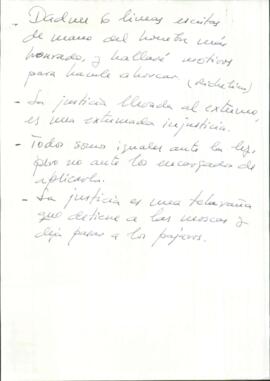 - Dadme 6 líneas escritas
de mano del hombre más
honrado, y hallaré motivos
para hacerle ahorcar.
- La justicia llevada al extremo,
es una extremada injusticia.
- Todos somos iguales ante la ley,
pero no ante los encargados de
aplicarla.
- La justicia es una telaraña
que detiene a las moscas y
deja pasar a los pájaros.